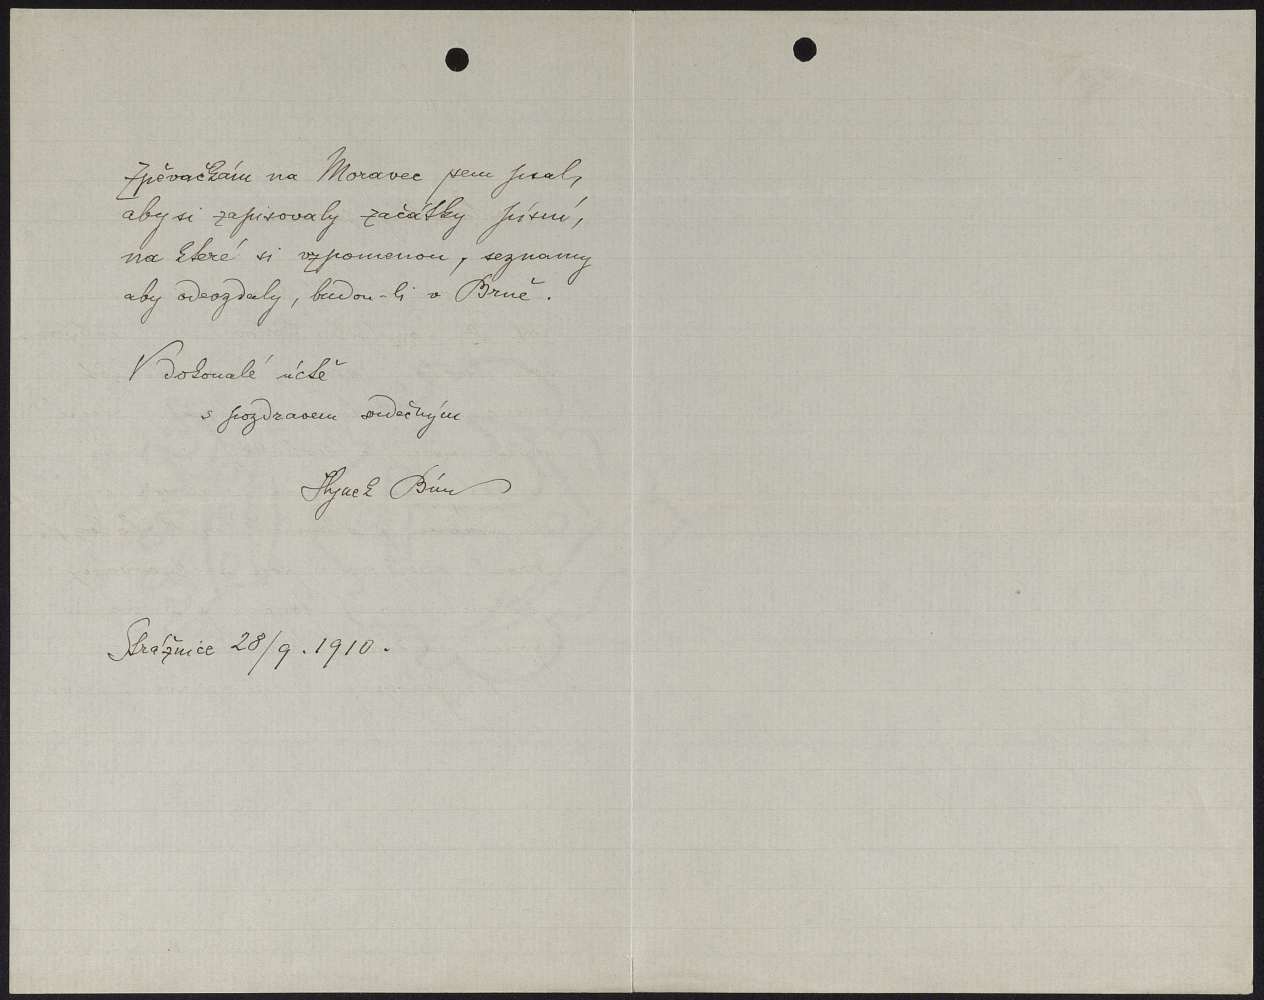 Zpěvačkám na Moravec jsem psal,
aby si zapisovaly začátky písní,
na které si vzpomenou, seznamy
aby odevzdaly, budou-li v Brně.
V dokonalé úctě
s pozdravem srdečným
Hynek Bím
Strážnice 28/9. 1910.